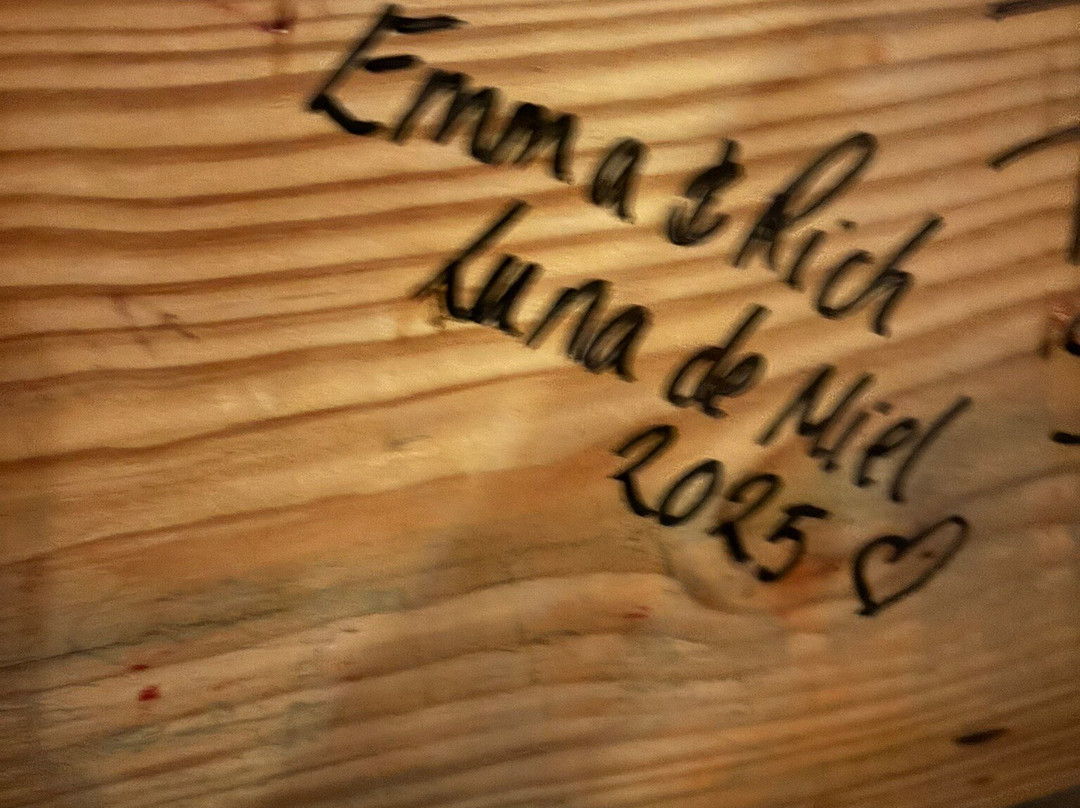 Emma & Rich
Luna de Miel
2025 ♡